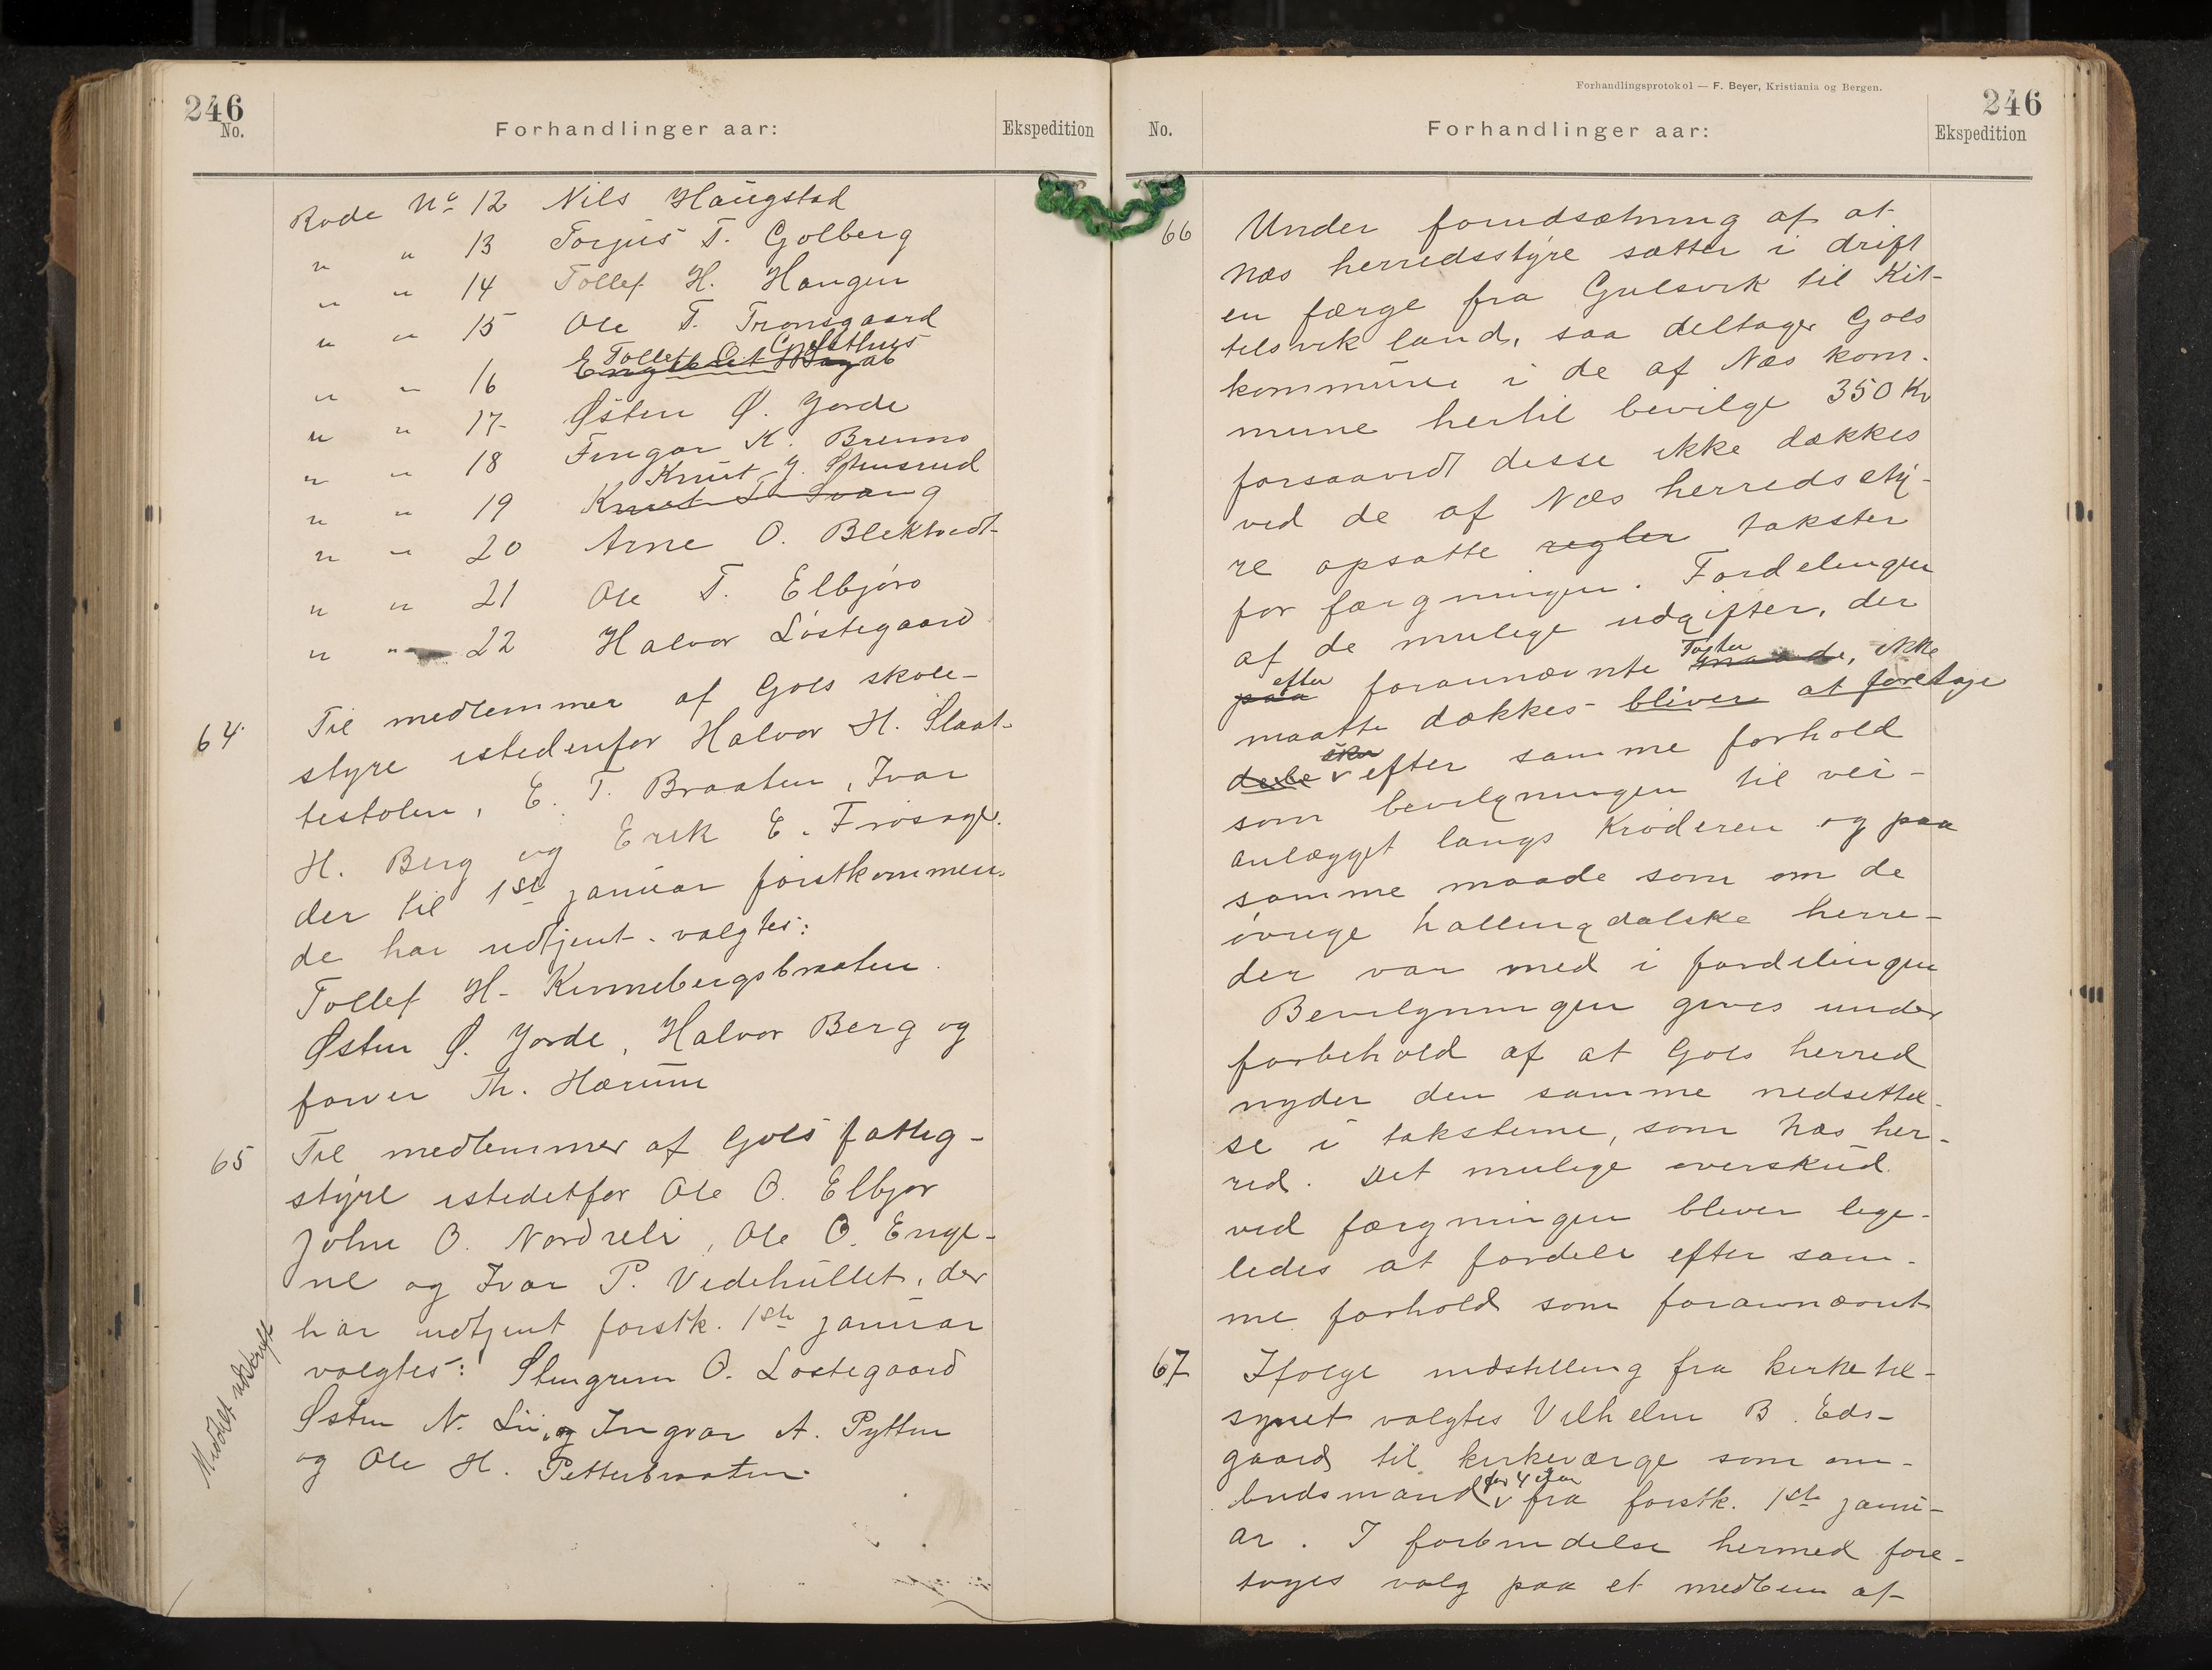 246
No.
Forhandlinger aar:
Ekspedition
Rode No 12 Nils Haugstad
" " 13 Torjus T. Golberg
" " 14 Tollef H. Haugen
" " 15 Ole T. Tronsgaard
Tollef O. Golthus
" " 16
" " 17 Østen Ø. Jorde
" " 18 Fingar K. Brenno
Knut J.
" " 19 Knut Svang
" " 20 Arne O. Blekkvedt
" " 21 Ole T. Elbjøro
" " 22 Halvor Løstegaard
64. Til medlemmer af Gols skole-
styre istedenfor Halvor H. Slaat-
testølen, E. T. Braaten, Ivar
H. Berg og Erik E. Frøsagr.
der til 1ste januar førstkommen-
de har udtjent. valgtes:
Tollef H. Kinnebergsbraaten.
Østen Ø. Jorde, Halvor Berg og
farver Th. Hærum
65 Til medlemmer af Gols fattig-
styre istedetfor Ole O. Elbjør
John O. Nordreli, Ole O. Enge-
ne og Ivar P. Vedehullet, der
har udtjent førstk. 1ste januar
valgtes: Stengrim O. Løstegaard
Østen N. Lii, og Ingvar A. Pytten
og Ole H. Petterbraaten.
Meddelt udskrift
Forhandlingsprotokol — F. Beyer, Kristiania og Bergen.
246
No.
Forhandlinger aar:
Ekspedition
66 Under forudsætning af at
Næs herredsstyre sætter i drift
en færge fra Gulsvik til Kit-
telsvik land, saa deltager Gols
kommune i de af Næs kom-
mune hertil bevilge 350 Kr
forsaavidt desse ikke dækkes
ved de af Næs herredssty-
re opsatte regler takster
for færgningen. Fordelingen
af de mulige udgifter, der
efter
paa forannævnte maade, ikke
maatte dækkes bliver at foretage
sker
dele v efter samme forhold
som bevilgningen til vei-
anlægget langs Krøderen og paa
samme maade som om de
øvrige hallingdalske herre-
der var med i fordelingen
Bevilgningen gives under
forbehold af at Gols herred
nyder den samme nedsettel-
se i taksterne, som Næs her-
red. Det mulige overskud
ved færgningen bliver lige-
ledes at fordele efter sam-
me forhold som forannævnt
67 Ifølge indstilling fra kirketil-
synet valgtes Vilhelm B. Eds-
gaard til kirkeværge som om-
for 4 aar
budsmand v fra førstk. 1ste janu-
ar. I forbindelse hermed fore-
toges valg paa et medlem af